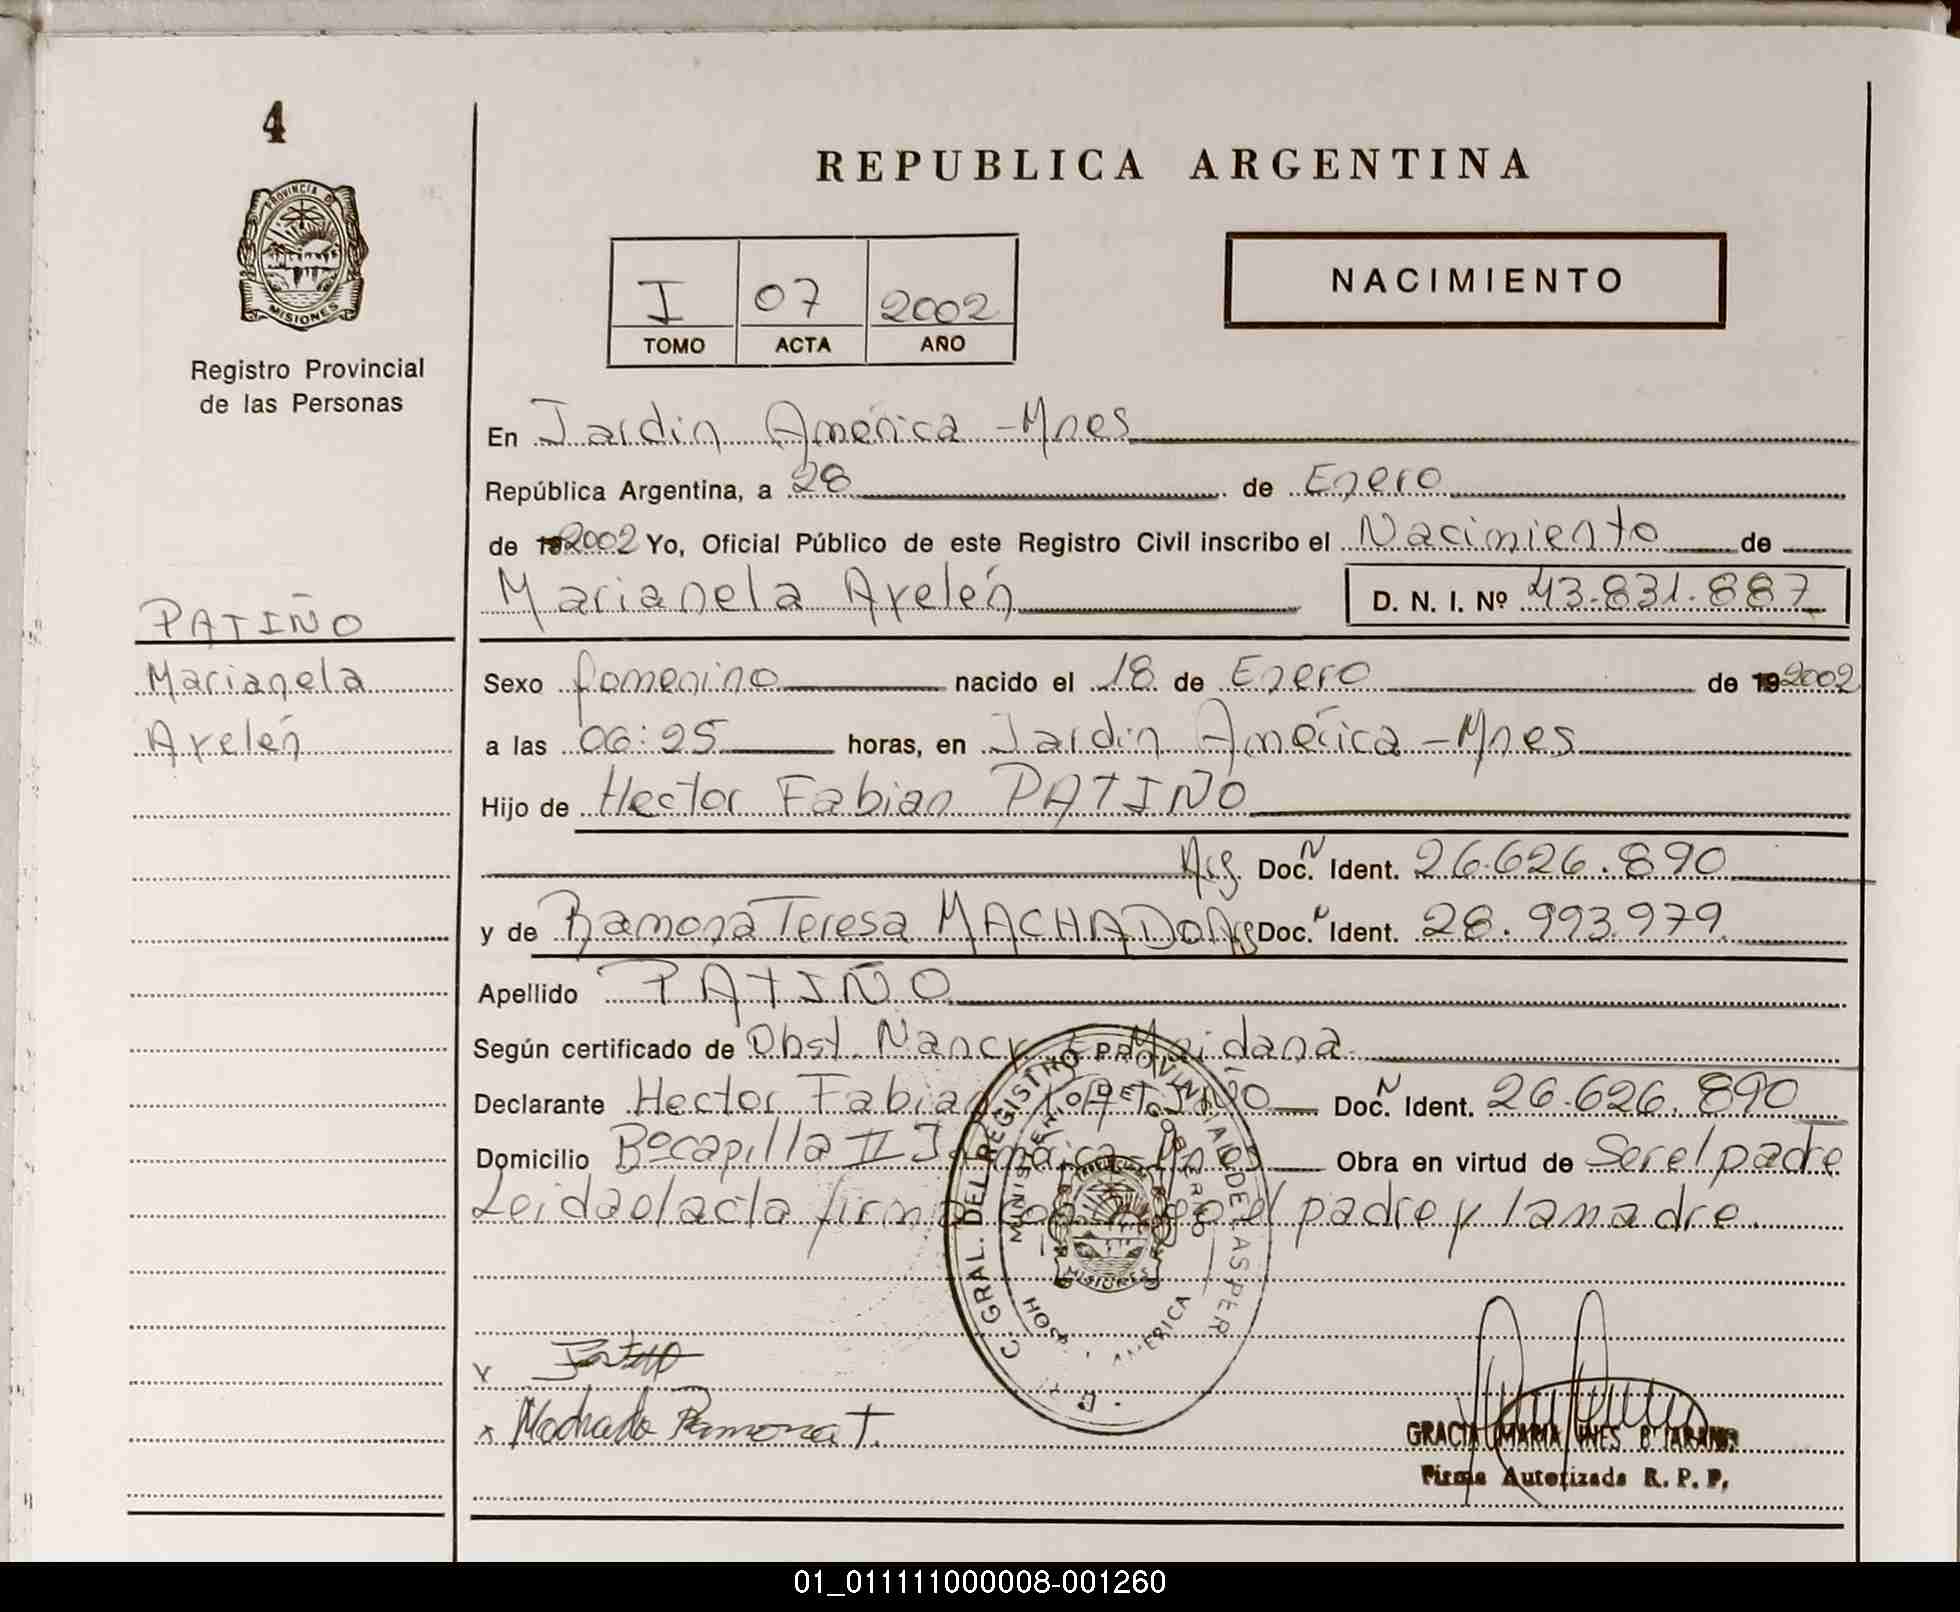 4
REPUBLICA ARGENTINA
PROVINCIA DE
MISIONES
I 07 2002
TOMO ACTA AÑO
NACIMIENTO
Registro Provincial
de las Personas
En Jardin América - Mnes
República Argentina, a 28 de Enero
de 192002 Yo, Oficial Público de este Registro Civil inscribo el Nacimiento de
Marianela Ayelén D. N. I. Nº 43.831.887
PATIÑO
Marianela
Ayelén
Sexo femenino nacido el 18 de Enero de 192002
a las 06:25 horas, en Jardin América - Mnes
Hijo de Hector Fabian PATIÑO
Arg. Doc. N Ident. 26.626.890
y de Ramona Teresa MACHADO Arg Doc. N Ident. 28.993.979
Apellido PATIÑO
Según certificado de Obst. Nancy E. Maidana
Declarante Hector Fabian PATIÑO Doc. N Ident. 26.626.890
Domicilio Bº capilla II J. América - Mnes Obra en virtud de Ser el padre
Leida el acta firman conmigo el padre y la madre.
GRAL. DEL REGISTRO PROVINCIAL DE LAS PER
MINISTERIO DE GOBIERNO
MISIONES
AMERICA
x
x Machado Ramona T.
GRACIA MARIA INES B.
Firma Autorizada R. P. P.
01_011111000008-001260